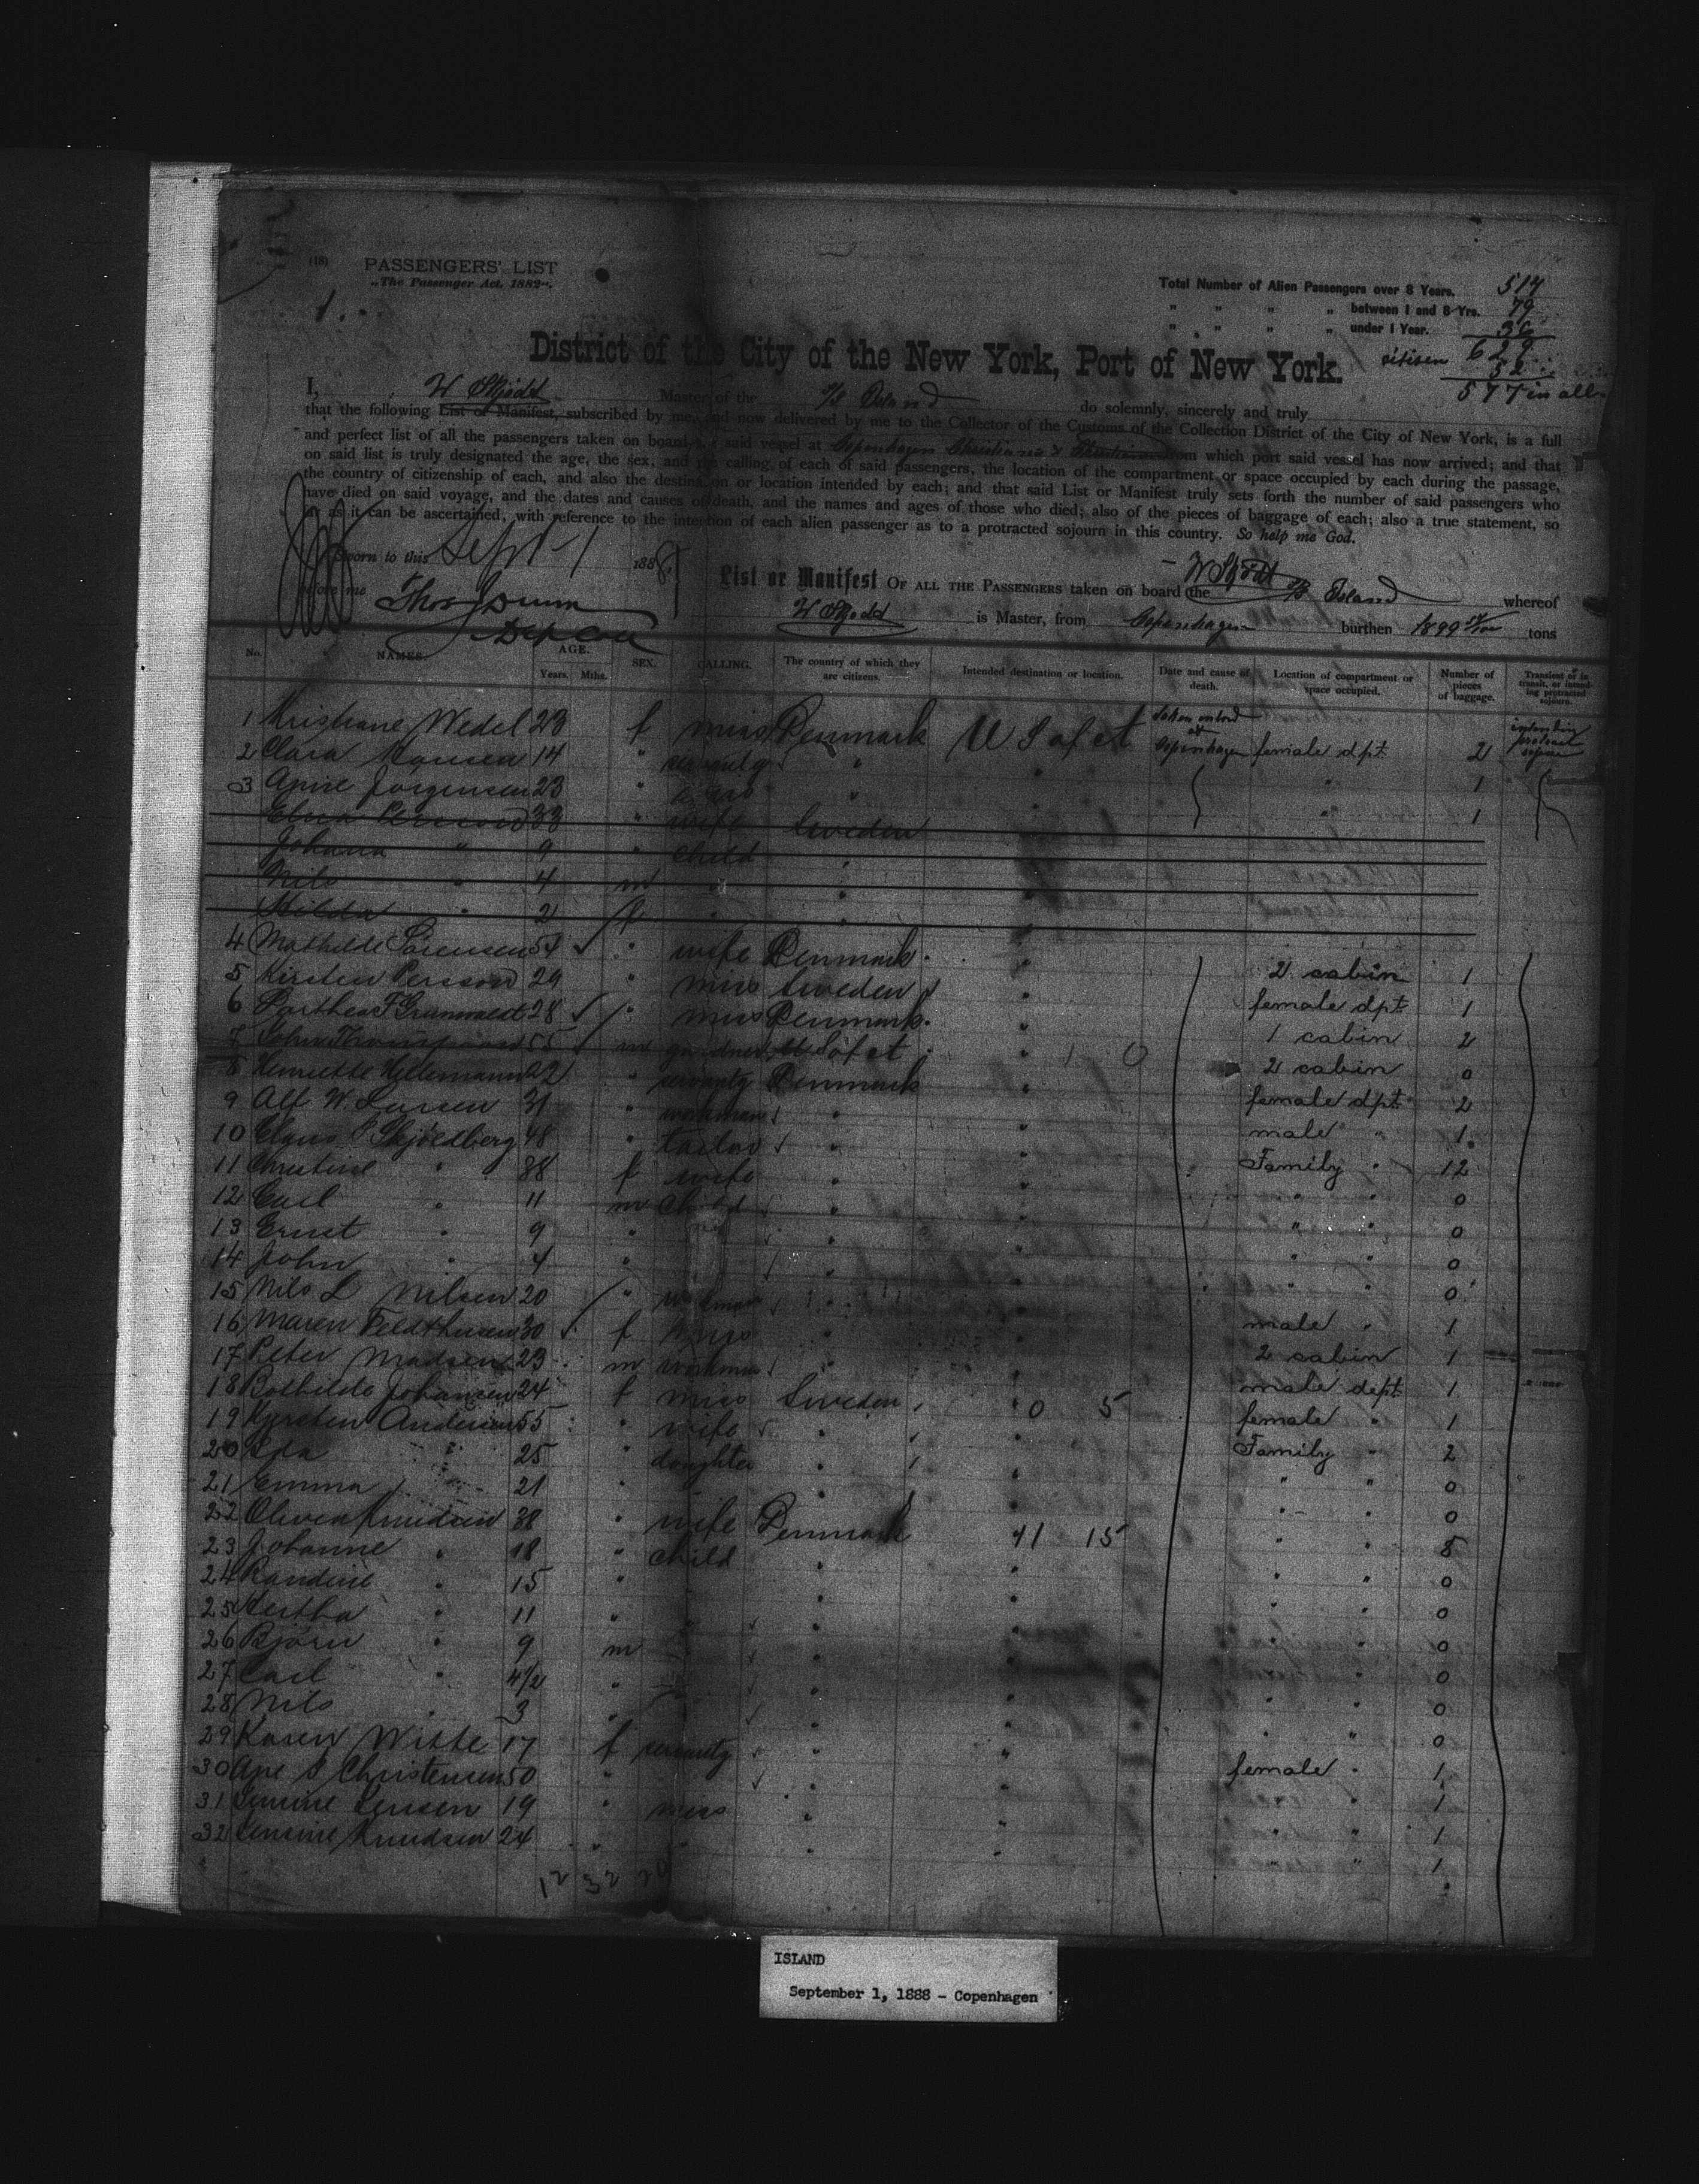 (18) PASSENGERS' LIST
„The Passenger Act, 1882“.
1.
Total Number of Alien Passengers over 8 Years. 514
" " " " between 1 and 8 Yrs. 79
" " " " under 1 Year. 36
629
citizen 52
577 in all
District of the City of the New York, Port of New York.
I, W Skjödt Master of the S/S Island do solemnly, sincerely and truly
that the following List or Manifest, subscribed by me, and now delivered by me to the Collector of the Customs of the Collection District of the City of New York, is a full
and perfect list of all the passengers taken on board the said vessel at Copenhagen Christiania & Christiansand from which port said vessel has now arrived; and that
on said list is truly designated the age, the sex, and the calling of each of said passengers, the location of the compartment or space occupied by each during the passage,
the country of citizenship of each, and also the destination or location intended by each; and that said List or Manifest truly sets forth the number of said passengers who
have died on said voyage, and the dates and causes of death, and the names and ages of those who died; also of the pieces of baggage of each; also a true statement, so
far as it can be ascertained, with reference to the intention of each alien passenger as to a protracted sojourn in this country. So help me God.
Sworn to this Sept 1 1888
before me Thos Dunn
Dep Coll
W Skjödt
List or Manifest OF ALL THE PASSENGERS taken on board the S/S Island whereof
W Skjödt is Master, from Copenhagen burthen 1899 tons
No. NAMES. AGE. Years. Mths. SEX. CALLING. The country of which they are citizens. Intended destination or location. Date and cause of death. Location of compartment or space occupied. Number of pieces of baggage. Transient or in transit, or intending protracted sojourn.
1 Kristiane Wedel 23 f miss Denmark U S of at taken onbord at Copenhagen female dpt. 2 intending protract sojourn
2 Clara Hansen 14 " servantg " " " 1
3 Anine Jorgensen 23 " miss " " " 1
Elna Persson 33 " wife Sweden "
Johana " 9 " child " "
Nils " 4 m " " "
Hilda " 2 f " " "
4 Mathilde Sörensen 54 " wife Denmark " 2 cabin 1
5 Kirsten Persson 29 " miss Sweden " female dpt 1
6 Parthea F Grunwaldt 28 " miss Denmark " 1 cabin 2
7 John Thompson 55 m gardner U S of at " 2 cabin 0
8 Henriette Hellemann 22 " servantg Denmark female dpt 2
9 Alf W. Larsen 31 " workman " " male " 1
10 Claus P Skjoldberg 48 " tailor " " Family " 12
11 Christine " 38 f wife " " " " 0
12 Carl " 11 m child " " " " 0
13 Ernst " 9 " " " " " 0
14 John " 4 " " " " 0
15 Nils L Nilsen 20 " workman " " male " 1
16 Maren Feldthusen 30 f miss " " 2 cabin 1
17 Peter Madsen 23 m workman " " male dept 1
18 Bothilde Johansen 24 f miss Sweden " 0 5 female " 1
19 Kjersten Andersen 55 " wife " " Family " 2
20 Ida " 25 " daughter " " " " 0
21 Emma " 21 " " " " " 0
22 Olivea Knudsen 38 " wife Denmark 41 15 " " 8
23 Johanne " 18 " child " " " " 0
24 Randine " 15 " " " " " 0
25 Hertha " 11 " " " " " 0
26 Björn " 9 m " " " " 0
27 Carl " 4½ " " " " " 0
28 Nils " 3 " " " " " 0
29 Karen Witte 17 f servantg " " female " 1
30 Ane S Christensen 50 " " " " " 1
31 Jensen 19 " miss " " " " 1
32 Knudsen 24 " " " " " " 1
12 32 20
ISLAND
September 1, 1888 - Copenhagen